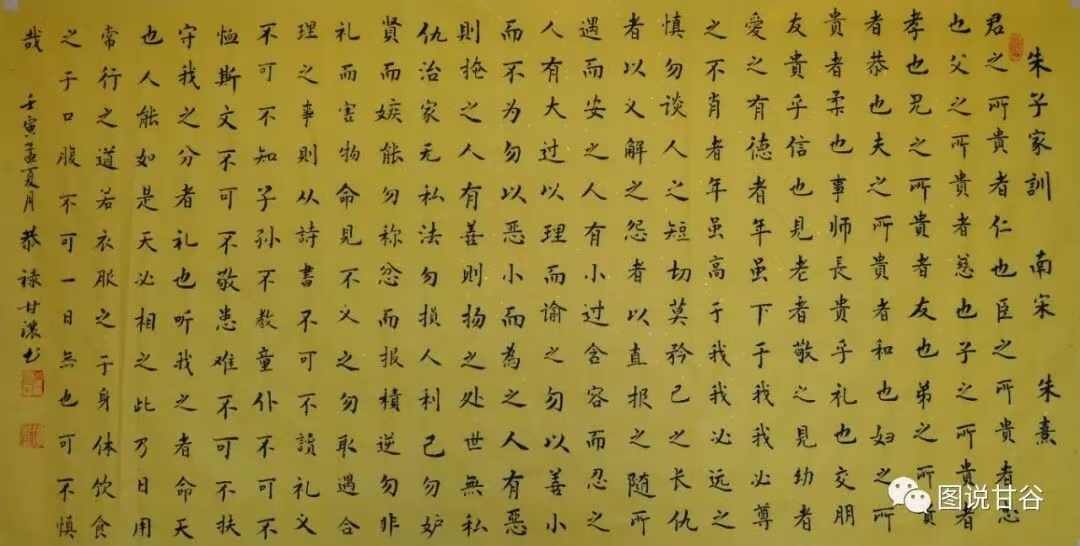 朱子家訓 南宋 朱熹
君之所貴者仁也臣之所貴者忠
也父之所貴者慈也子之所貴者
孝也兄之所貴者友也弟之所貴
者恭也夫之所貴者和也妇之所
貴者柔也事師長貴乎礼也交朋
友貴乎信也見老者敬之見幼者
愛之有德者年虽下于我我必尊
之不肖者年虽高于我我必远之
慎勿谈人之短切莫矜己之长仇
者以义解之怨者以直报之随所
遇而安之人有小过含容而忍之
人有大过以理而谕之勿以善小
而不为勿以恶小而為之人有恶
則掩之人有善則扬之处世無私
仇治家无私法勿損人利己勿妒
賢而嫉能勿称忿而报横逆勿非
礼而害物命見不义之勿取遇合
理之事則从詩書不可不讀礼义
不可不知子孙不教童仆不可不
恤斯文不可不敬患难不可不扶
守我之分者礼也听我之者命天
也人能如是天必相之此乃日用
常行之道若衣服之于身体饮食
之于口腹不可一日無也可不慎
哉 壬寅孟夏月 恭禄甘濃书
图说甘谷